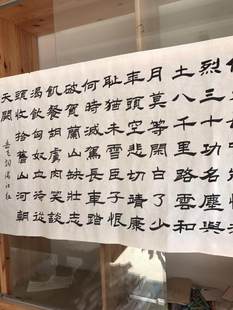 烈三十功名塵與
土八千里路雲和
月莫等閑白了少
年頭空悲切靖康
耻猶未雪臣子恨
何時滅駕長車踏
破賀蘭山缺壯志
飢餐胡虜肉笑談
渴飲匈奴血待從
頭收拾舊山河朝
天闕
岳飛詞滿江紅